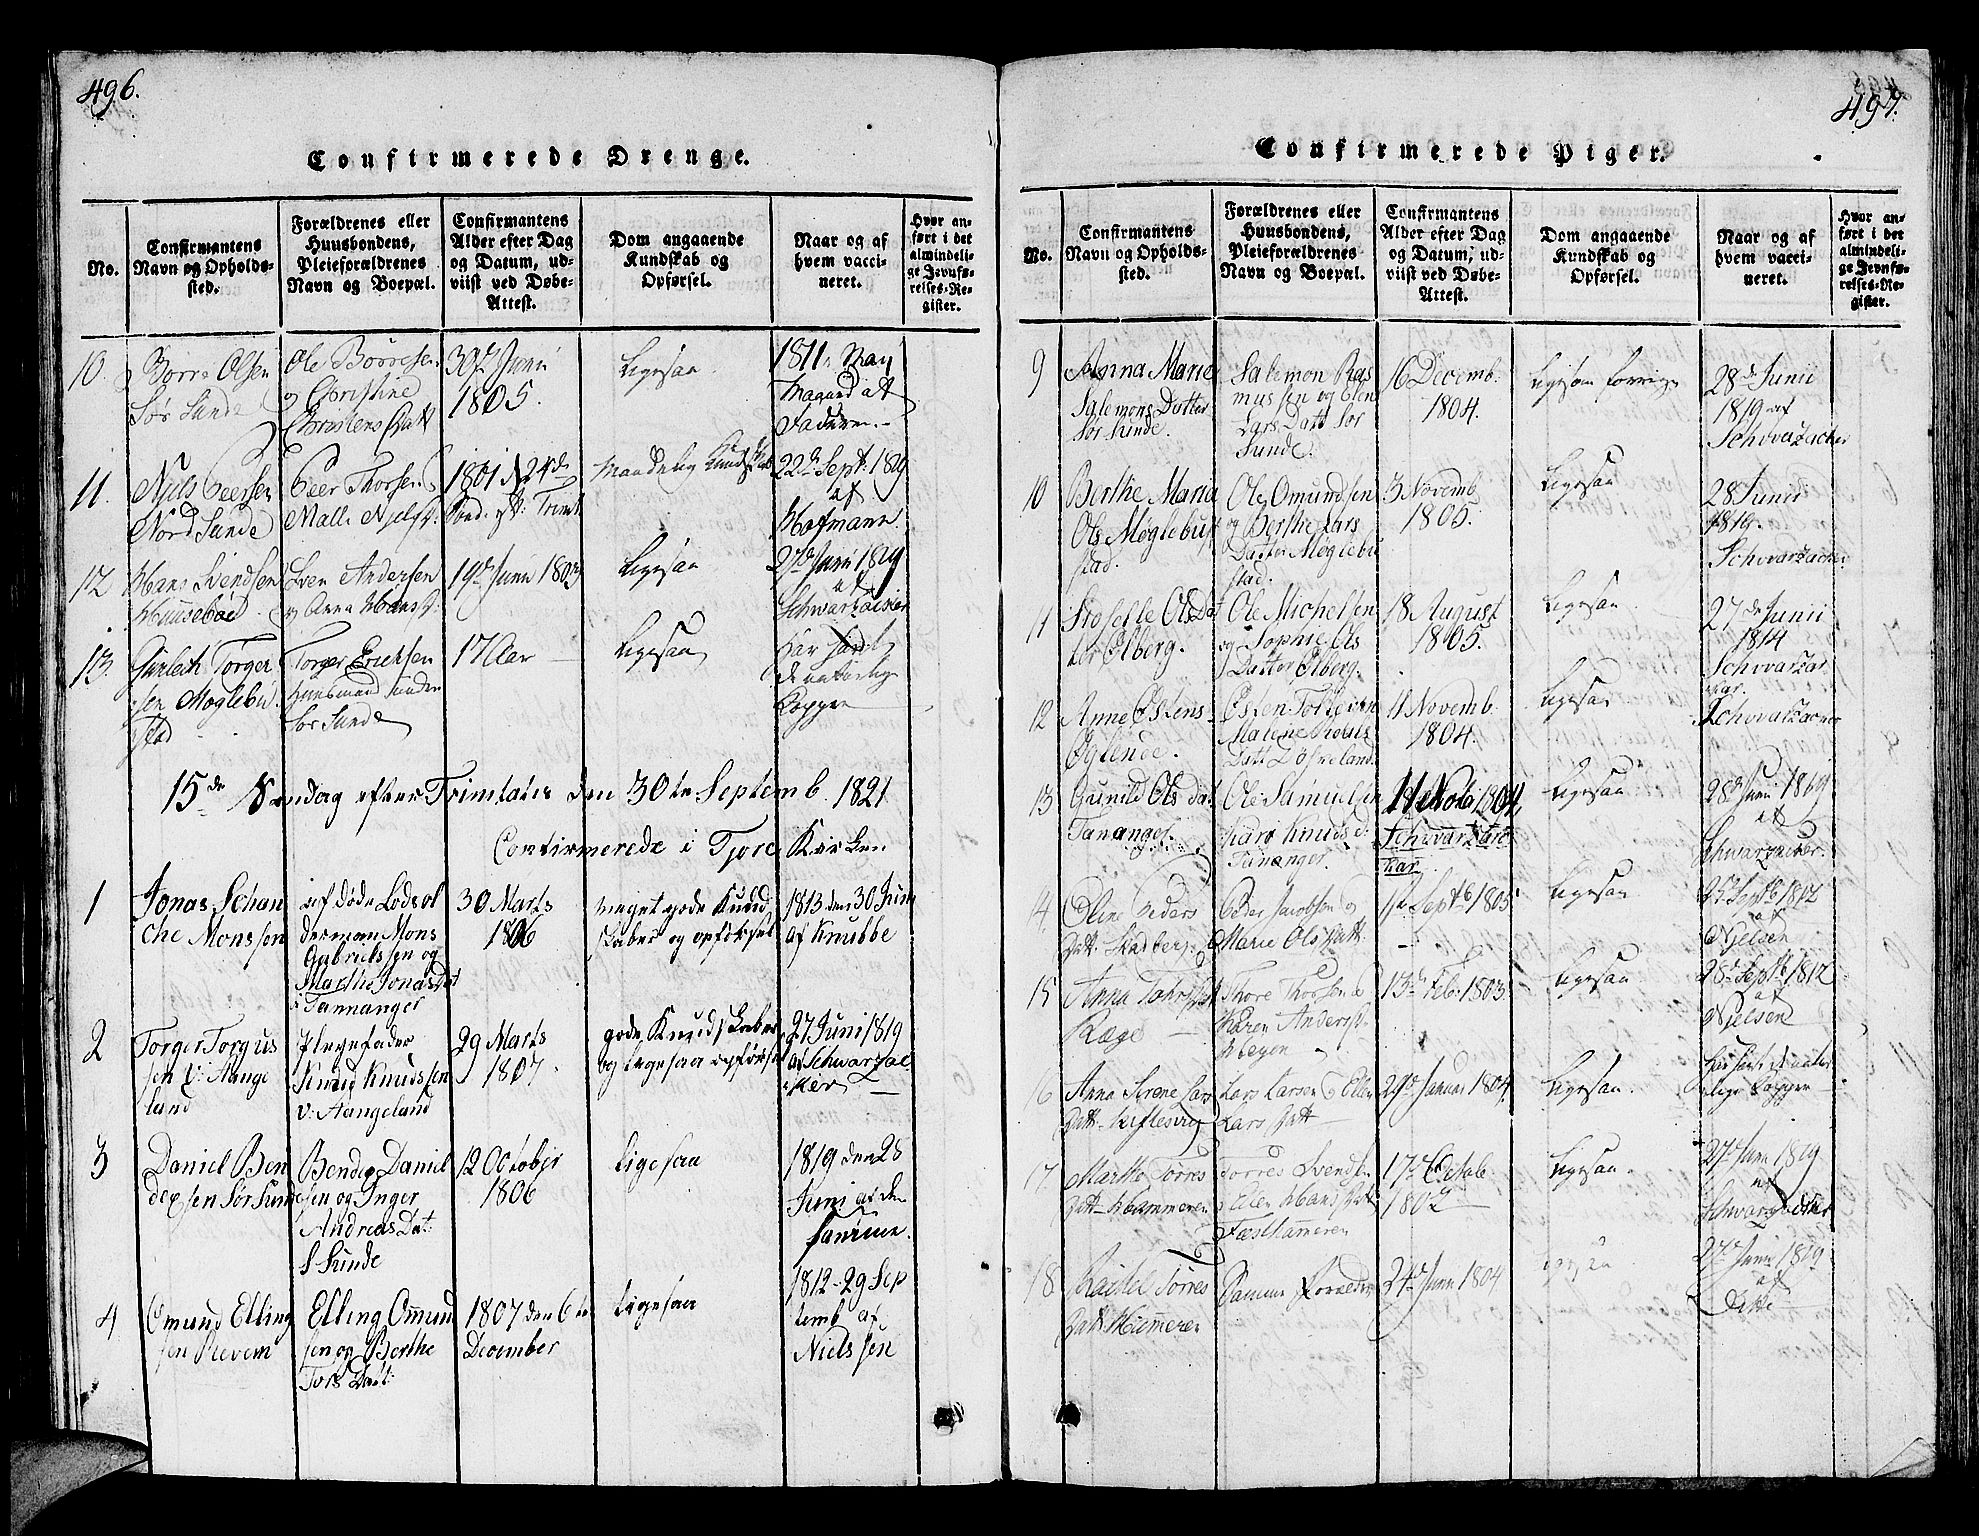 496.
Confirmerede Drenge.
No.
Confirmantens Navn og Opholdssted.
Forældrenes eller Huusbondens, Pleieforældrenes Navn og Boepæl.
Confirmantens Alder efter Dag og Datum, udviist ved Døbe-Attest.
Dom angaaende Kundskab og Opførsel.
Naar og af hvem vaccineret.
Hvor anført i det almindelige Jevnførelses-Register.
10. Børre Olsen
Sør Sunde
Ole Børresen
og Christine
Christens Datt
30te Junii
1805.
Ligesaa
1811. May
Magand at
Faderen.
11. Niels Peersen
Nord Sunde
Peer Thorsen
Malle Njels
1801 24de
Sønd. Trinit
Maadelig Kundskab
22de Sept: 1819
af
Hofmann
12 Hans Svendsen
Huusebøe
Sven Andersen
og Anna Hans
19de Junii 1803
Ligesaa
27de Juni 1819
af
Schwarzacker
13. Torger
sen Møglebu
stad
Torger Erichsen
Huusmand under
Sør Sunde
17 Aar
Ligesaa
har havt
de naturlige
Kopper
15de Søndag efter Trinitatis den 30te Septemb. 1821
Confirmerede i Tjore Kirken
1 Jonas Schan
che Monssen
afdøde Lodsol
derman Mons
Gabrielssen og
Marthe Jonas Dat
Tannanger
30 Marts
1806
meget gode Kund
skaber og opførsel
1813 den 30 Juni
af Knubbe
2 Torger Torgus
sen v: Aange
land
Plegefader
Knud Knudssen
v: Aangeland
29 Marts
1807
gode Kundskaber
og ligesaa opførsel
27 Juni 1819
af Schwarzac
ker
3 Daniel Ben
dixsen Sør Sunde
Bendix Daniel
sen og Inger
Andreas Dat:
S Sunde
12 October
1806
Ligesaa
1819 den 28
Juni af den
samme.
4 Omund Elling
sen Revem
Elling Omund
sen og Berthe
Tors Dat:
1807 den 6te
December
Ligesaa
1812 - 29 Sep
temb af
Nielssen
497.
Confirmerede Piger.
No.
Confirmantens Navn og Opholdssted.
Forældrenes eller Huusbondens, Pleieforældrenes Navn og Boepæl.
Confirmantens Alder efter Dag og Datum, udviist ved Døbe-Attest.
Dom angaaende Kundskab og Opførsel.
Naar og af hvem vaccineret.
Hvor anført i det almindelige Jevnførelses-Register.
9 Anna Marie
Salemons Datter
Sør Sunde.
Salemon Ras
mussen og Elen
Lars Datt Sør
Sunde.
16 Decemb.
1804.
Ligesom forrige
28de Junii
1819 af
Schvarzacker
10 Berthe Maria
Ols Møglebu
stad.
Ole Omundsen
og Berthe Lars
Datter Møglebu
stad.
3 Novemb
1805.
Ligesaa
28 Junii
1819.
Schvarzacker
11 Ols Dat
ter Ølberg.
Ole Michelsen
og Sophie Ols
Datter Ølberg.
18 August
1805.
Ligesaa
27de Junii
1814
Schvarzac
ker.
12 Anne Østens
Øglende.
Østen
Malene
Datt
11 Novemb.
1804.
Ligesaa
Schvarzacker
13 Gunild Ols dat
Tananger.
Ole Samuelsen
Karø Knuds d:
Tananger.
11 1804,
Schvarzac
kar
Ligesaa
28de Juni 1819
af
Schwarzacker.
14. Oline Peders
Datt. Skadberg.
Peder Jacobsen og
Marie Ols Datt.
1st Septb 1805
Ligesaa
25de Septb 1812
af
Njelsen
15 Anna
Ræge
Thore Thorsen
Karen Anders
13de Feb. 1803.
Ligesaa
28de Septb 1812
af
Njelsen
16 Anna Serene Lars
Datt.
Lars Larsen Ellen
Lars Datt
29de Januar 1804
Ligesaa.
har havt de natur
lige Kopper
17. Marthe Torres
Datt Hammeren
Torres Svends
Elen Hans Datt
17de Octob
1802
Ligesaa.
27de Juni 1819
af
Schvarzacker
18 Torres
Datt Hammeren
Samme Forældre
24de Juni 1804
Ligesaa
27de Juni 1819
af
Ditto